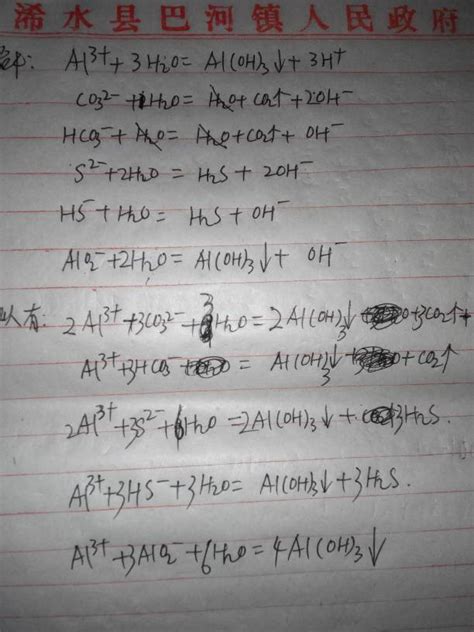 浠水县巴河镇人民政府
Al³⁺ + 3H₂O = Al(OH)₃↓ + 3H⁺
CO₃²⁻ + H₂O = H₂O + CO₂↑ + 2OH⁻
HCO₃⁻ + H₂O = H₂O + CO₂↑ + OH⁻
S²⁻ + 2H₂O = H₂S + 2OH⁻
HS⁻ + H₂O = H₂S + OH⁻
AlO₂⁻ + 2H₂O = Al(OH)₃↓ + OH⁻
有: 2Al³⁺ + 3CO₃²⁻ + 3H₂O = 2Al(OH)₃↓ + 3CO₂↑
Al³⁺ + 3HCO₃⁻ = Al(OH)₃↓ + CO₂↑
2Al³⁺ + 3S²⁻ + 6H₂O = 2Al(OH)₃↓ + 3H₂S.
Al³⁺ + 3HS⁻ + 3H₂O = Al(OH)₃↓ + 3H₂S.
Al³⁺ + 3AlO₂⁻ + 6H₂O = 4Al(OH)₃↓